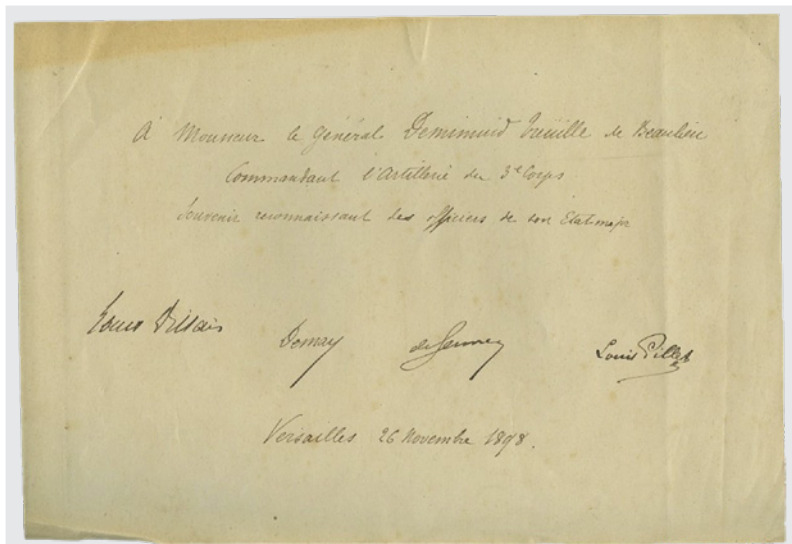 à Monsieur le Général Demimuid Treuille de Beaulieu
Commandant l'Artillerie du 3e Corps
Souvenir reconnaissant des officiers de son Etat-major
Demay de Louis Pillet
Versailles 26 Novembre 1898.